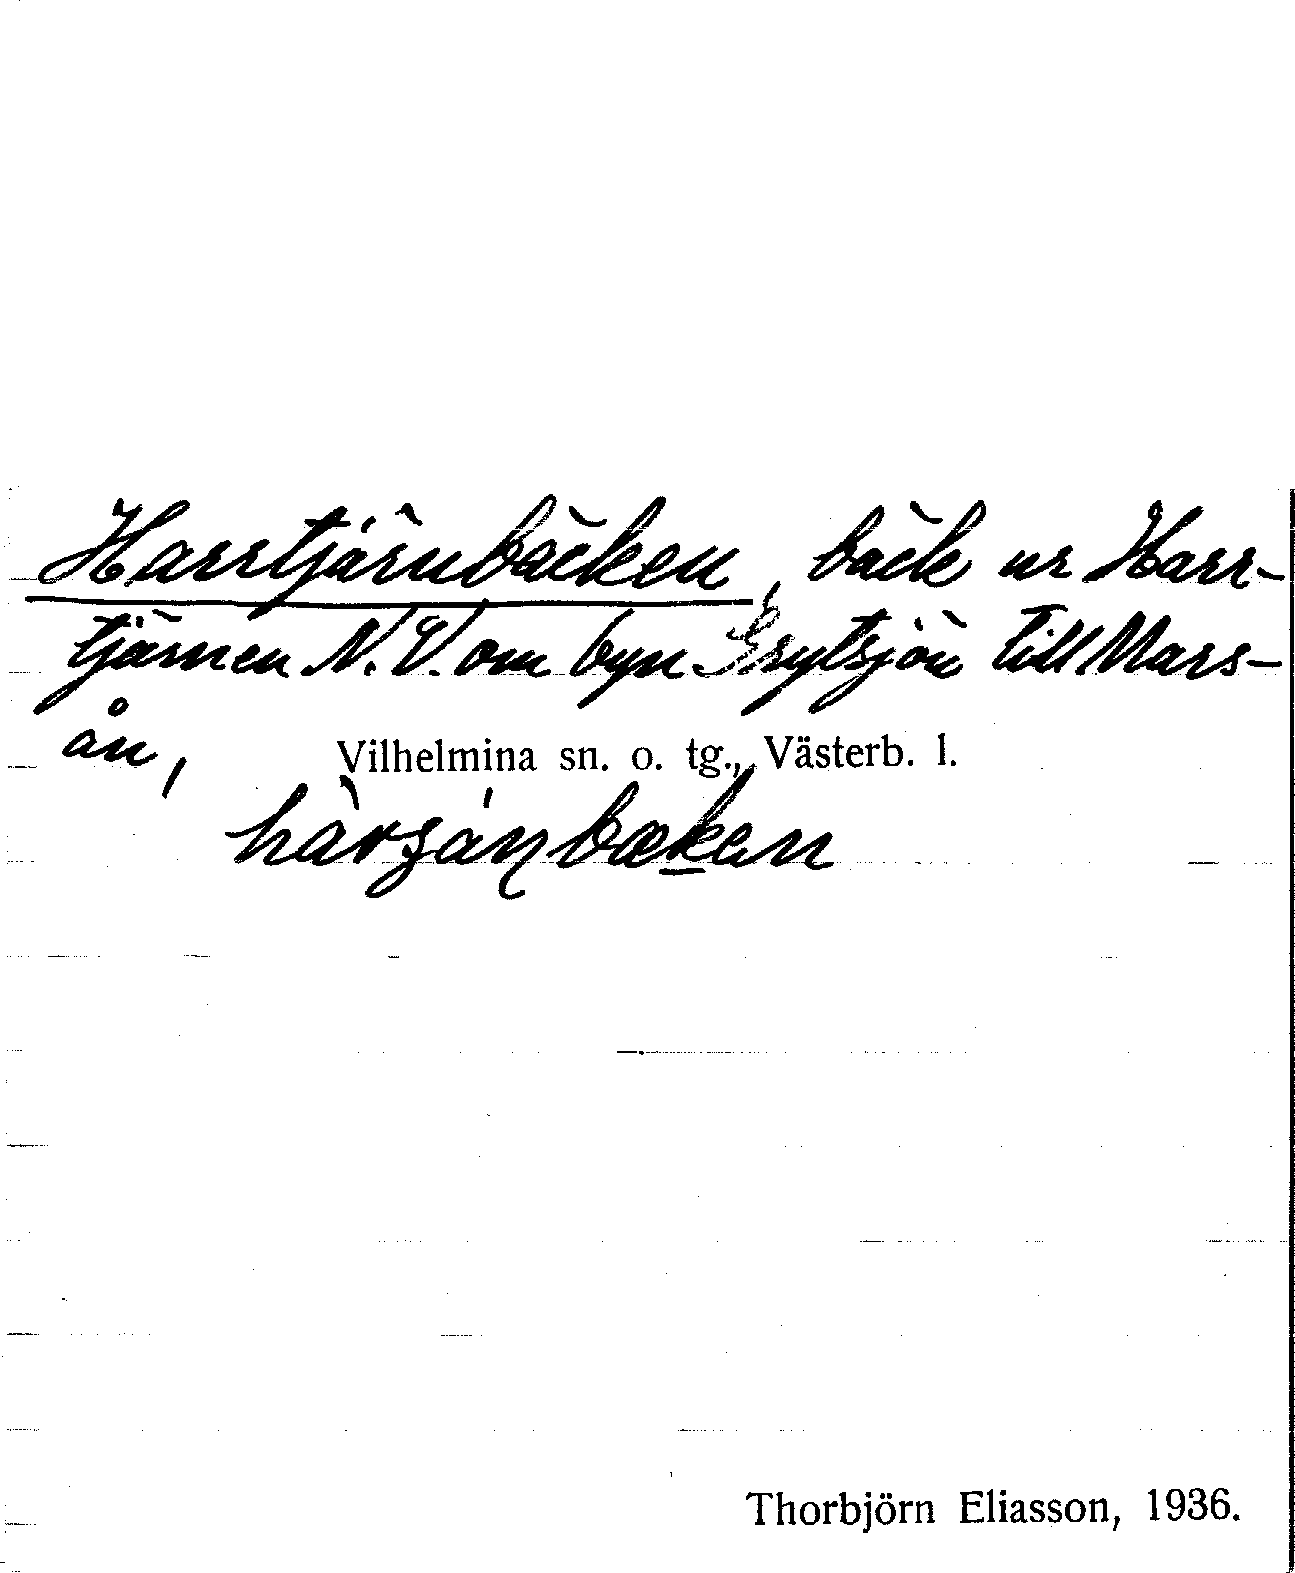 Harrtjärnbäcken, bäck ur Harr-
tjärnen N.V. om byn Grytsjön till Mars-
ån,
Vilhelmina sn. o. tg., Västerb. l.
Thorbjörn Eliasson, 1936.